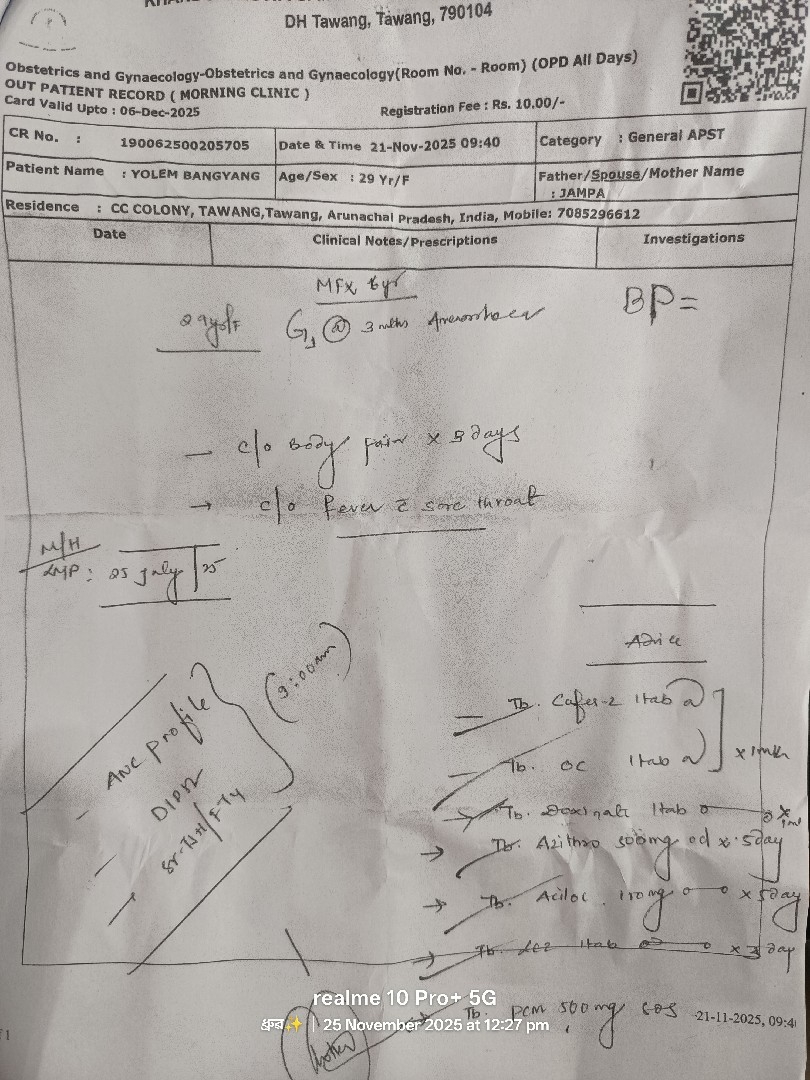 DH Tawang, Tawang, 790104
Obstetrics and Gynaecology-Obstetrics and Gynaecology(Room No. - Room) (OPD All Days)
OUT PATIENT RECORD ( MORNING CLINIC )
Card Valid Upto : 06-Dec-2025 Registration Fee : Rs. 10.00/-
CR No. : 190062500205705 Date & Time 21-Nov-2025 09:40 Category : General APST
Patient Name : YOLEM BANGYANG Age/Sex : 29 Yr/F Father/Spouse/Mother Name : JAMPA
Residence : CC COLONY, TAWANG,Tawang, Arunachal Pradesh, India, Mobile: 7085296612
Date Clinical Notes/Prescriptions Investigations
MFX 6yr
BP=
29yo/F G1 @ 3 mths Amenorrhoea
- c/o Body pain x 3 days
→ c/o fever c̄ sore throat
M/H
LMP : 25 July/25
Advice
(9:00am)
ANC profile
DIPSI
Sr-TSH/FT4
Tb. 1tab
Tb. OC 1tab
x 1mth
Tb. 1tab
Tb. Azithro 500mg od x 5day
Tb. Aciloc 150mg x 5day
Tb. 1tab x 3 day
Tb. PCM 500mg SOS
21-11-2025, 09:4
realme 10 Pro+ 5G
25 November 2025 at 12:27 pm